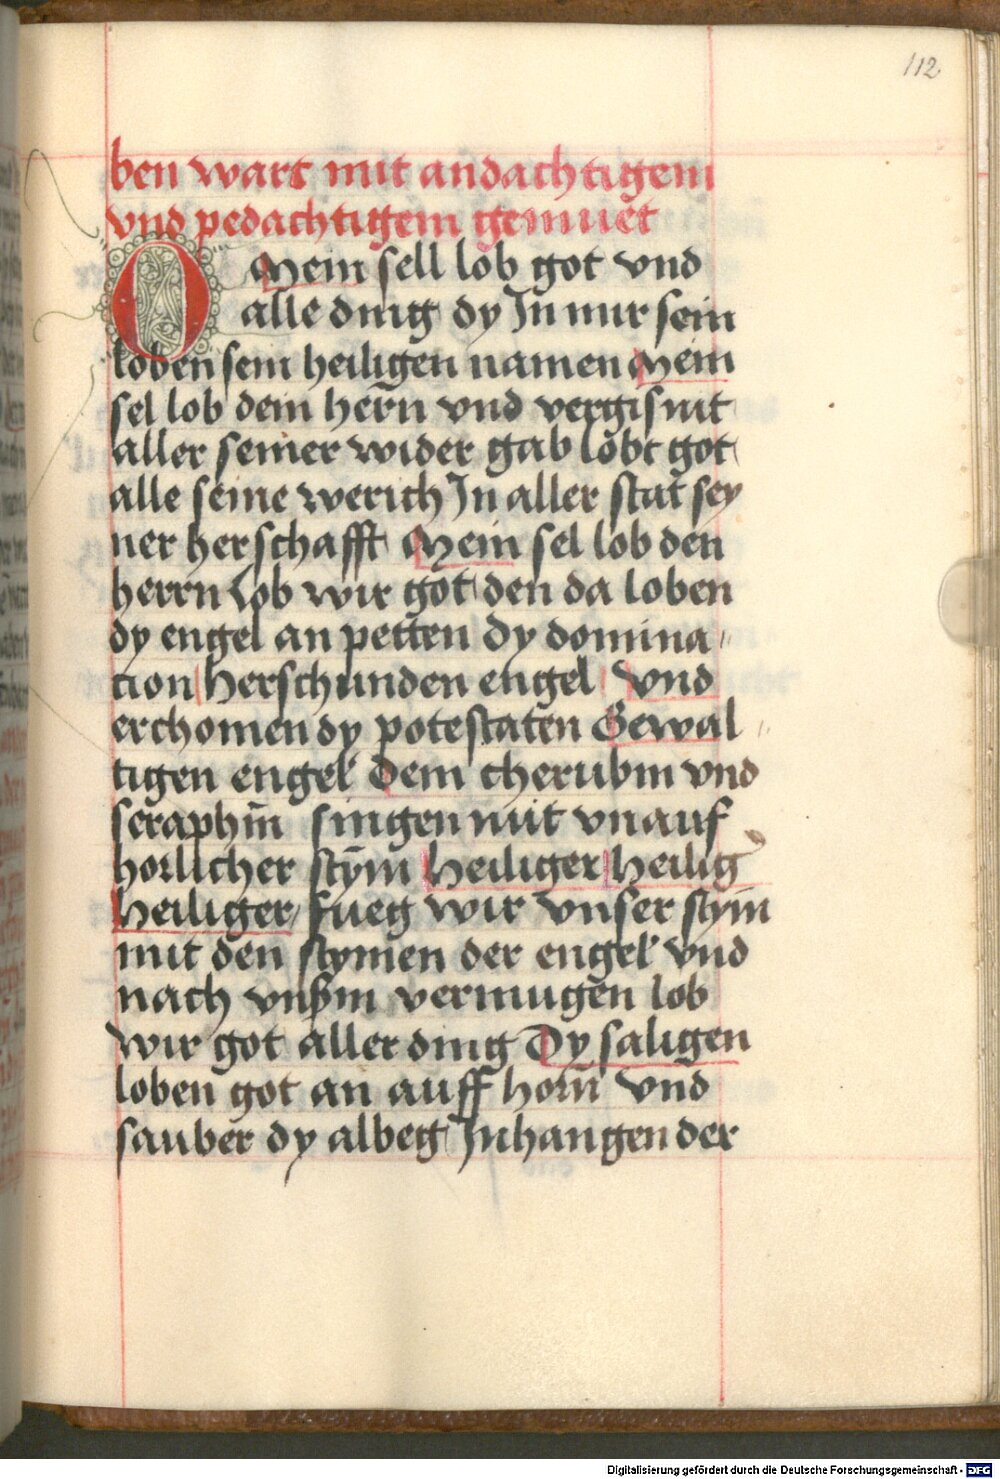 112
ben wart mit andachtigem
vnd pedachtigem gemuet
O Mein sell lob got vnd
alle ding dy In mir sein
loben sein heiligen namen Mein
sel lob dem herñ vnd vergis nit
aller seiner wider gab lobt got
alle seine werich In aller stat sey
ner herschafft Mein sel lob den
herrn Lob wir got den da loben
dy engel an petten dy domina
cion herschunden engel Vnd
erchomen dy potestaten Gewal
tigen engel Dem cherubin vnd
seraphin singen mit vnauf
horlicher stym̄ Heiliger Heilig
Heiliger Fueg wir vnser stym̄
mit den stymen der engel vnd
nach vnsm vermugen lob
wir got aller ding Dy saligen
loben got an auff horñ vnd
sauber dy albeg Inhangen der
Digitalisierung gefördert durch die Deutsche Forschungsgemeinschaft - DFG